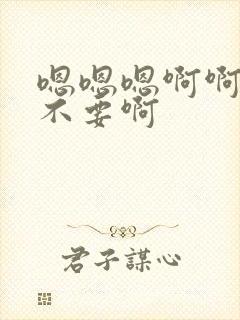 嗯嗯嗯啊啊
不要啊
君子謀心